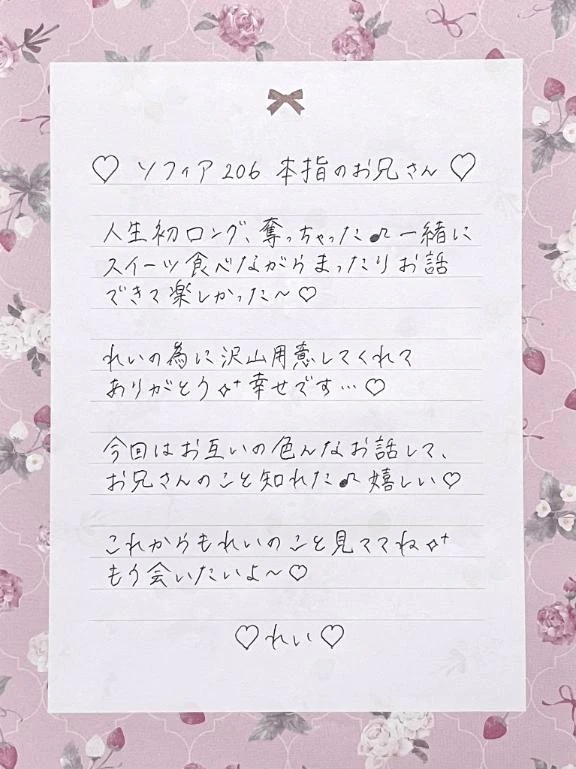 ♡ ソフィア206 本指のお兄さん ♡
人生初ロング、奪っちゃった♫ 一緒に
スイーツ食べながらまったりお話
できて楽しかった〜♡
れいの為に沢山用意してくれて
ありがとう✧⁺幸せです…♡
今回はお互いの色んなお話して、
お兄さんのこと知れた♫ 嬉しい♡
これからもれいのこと見ててね✧⁺
もう会いたいよ〜♡
♡れい♡